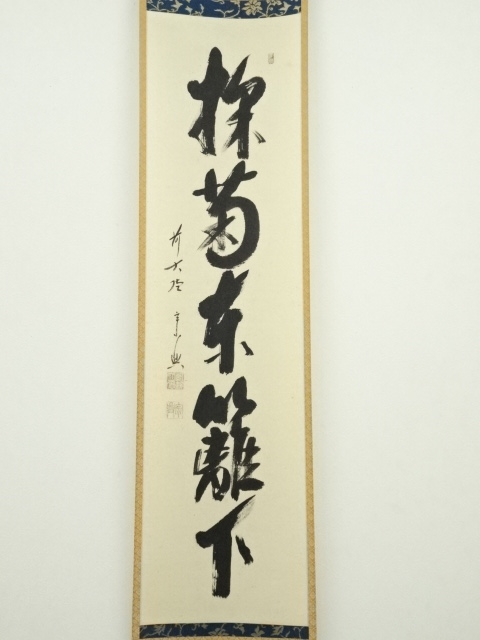 採菊東籬下
前大徳